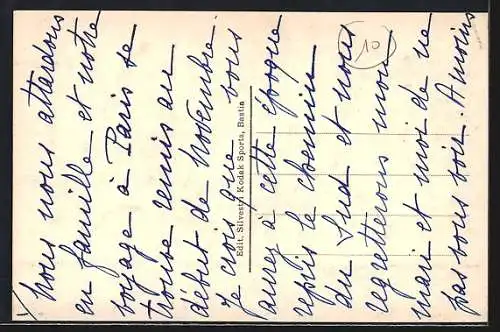 Nous nous attardons
en famille et notre
voyage à Paris se
trouve remis au
début de Novembre.
Je crois que vous
aurez à cette époque
repris le chemin
du Sud et nous
regretterons mon
mari et moi de ne
pas vous voir. A moins
Edit. Silvestri Kodak Sports, Bastia
10